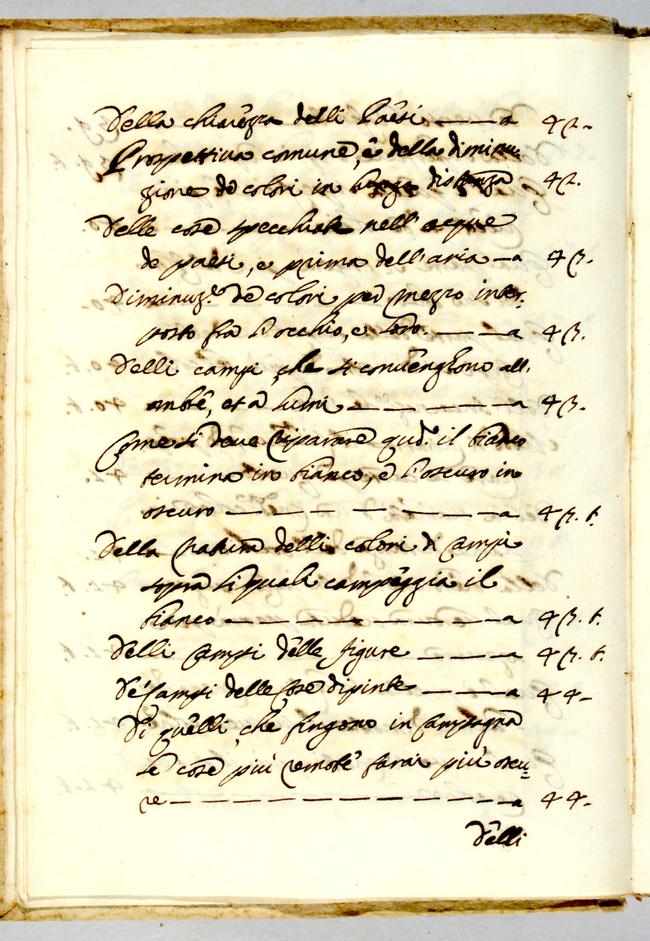 Della chiarezza delli Paesi — — a 42.
Prospettiva comune, e della diminu:
zione de colori in lunga distanza 42.
Delle cose specchiate nell'acque
de paesi, e prima dell'aria — a 43.
Diminuz.e de colori per mezzo inter:
posto fra l'occhio, e loro. — — a 43.
Delli campi che si convengono all'
ombre, et a lumi — — — — a 43.
Come si deve riparare qud.o il bianco
termina in bianco, e l'oscuro in
oscuro — — — — — — a 43. t.
Della natura delli colori di campi
sopra li quali campeggia il
bianco — — — — — — a 43. t.
Delli campi delle figure — — — a 43. t.
De' campi delle cose dipinte — — — a 44.
Di quelli, che fingono in campagna
le cose più remote farsi più oscu:
re — — — — — — — — a 44.
Delli